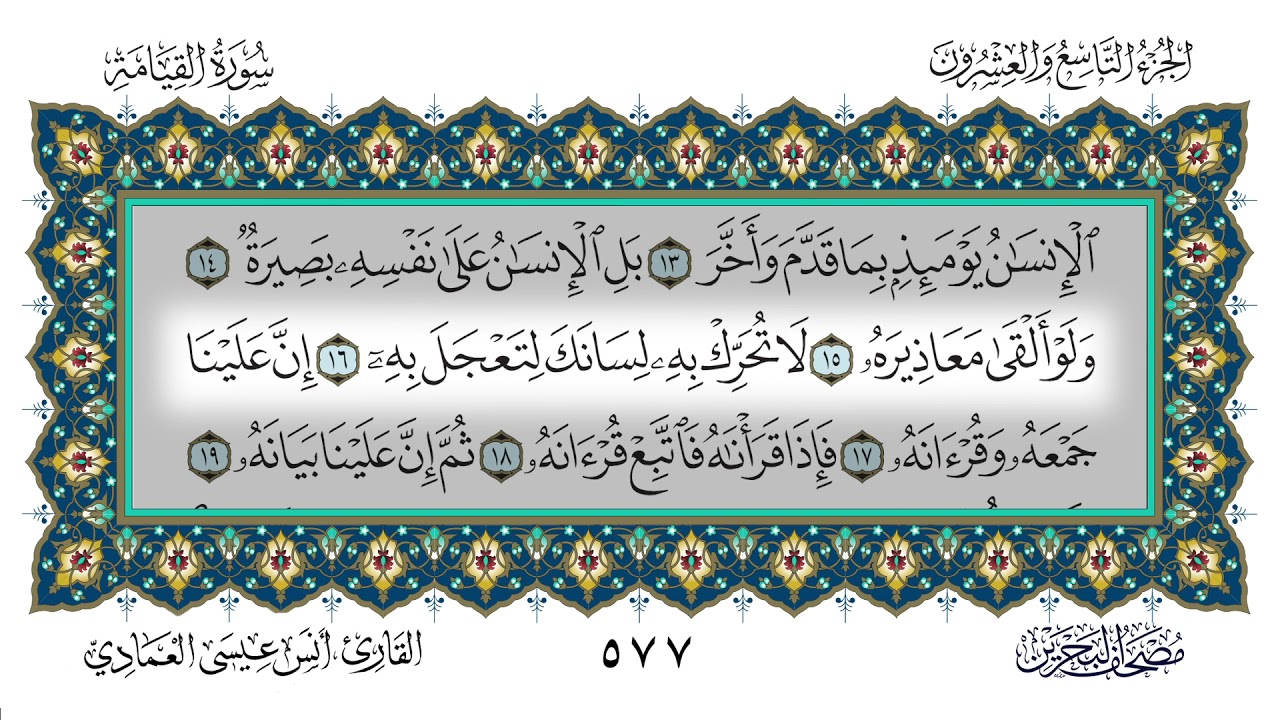 الجُزْءُ التَّاسِعُ وَالعِشْرُونَ
سُورَةُ القِيَامَةِ
ٱلْإِنسَٰنُ يَوْمَئِذٍۭ بِمَا قَدَّمَ وَأَخَّرَ ١٣ بَلِ ٱلْإِنسَٰنُ عَلَىٰ نَفْسِهِۦ بَصِيرَةٌۭ ١٤
وَلَوْ أَلْقَىٰ مَعَاذِيرَهُۥ ١٥ لَا تُحَرِّكْ بِهِۦ لِسَانَكَ لِتَعْجَلَ بِهِۦٓ ١٦ إِنَّ عَلَيْنَا
جَمْعَهُۥ وَقُرْءَانَهُۥ ١٧ فَإِذَا قَرَأْنَٰهُ فَٱتَّبِعْ قُرْءَانَهُۥ ١٨ ثُمَّ إِنَّ عَلَيْنَا بَيَانَهُۥ ١٩
مُصْحَفُ البَحْرَيْنِ
٥٧٧
القَارِئ، أَنَس عِيسَى العَمَادِيّ